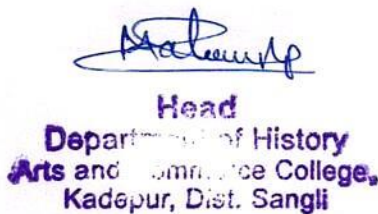 Head
Department of History
Arts and Commerce College,
Kadepur, Dist. Sangli